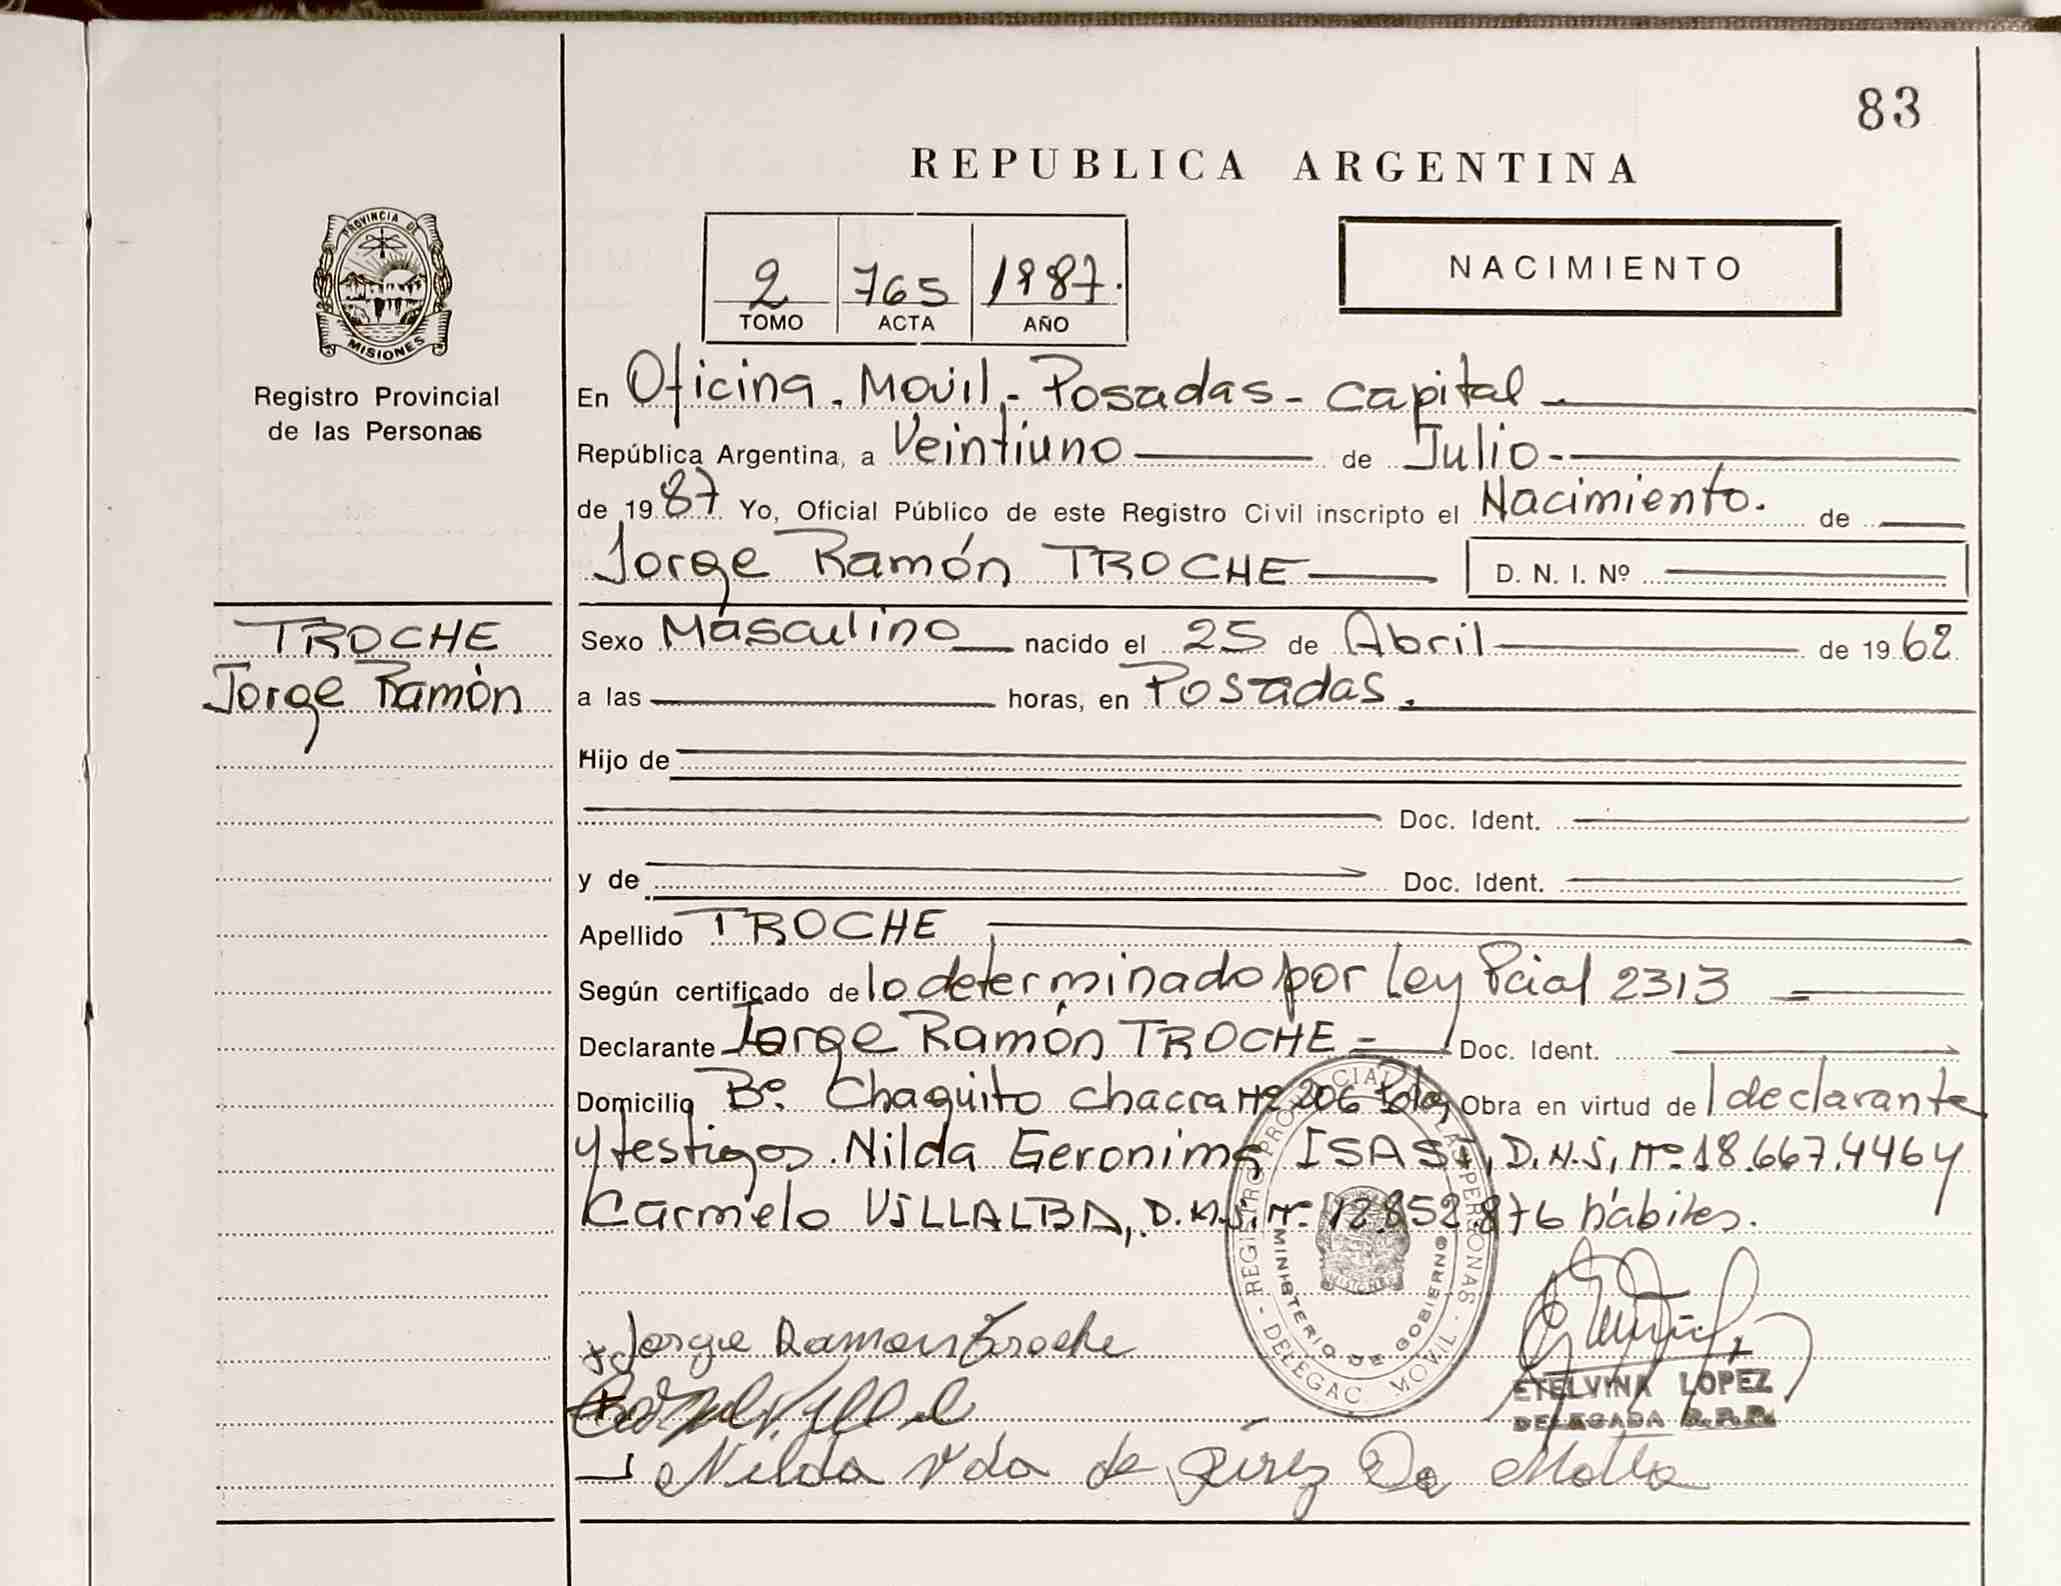 83
REPUBLICA ARGENTINA
PROVINCIA DE
MISIONES
Registro Provincial
de las Personas
2 765 1987.
TOMO ACTA AÑO
NACIMIENTO
En Oficina. Movil.- Posadas - Capital -
República Argentina, a Veintiuno de Julio-
de 1987 Yo, Oficial Público de este Registro Civil inscripto el Nacimiento. de
Jorge Ramón TROCHE D. N. I. Nº
TROCHE
Jorge Ramón
Sexo Masculino nacido el 25 de Abril de 1962
a las horas, en Posadas.
Hijo de
Doc. Ident.
y de Doc. Ident.
Apellido TROCHE
Según certificado de lo determinado por Ley Pcial 2313
Declarante Jorge Ramón TROCHE Doc. Ident.
Domicilio Bº. Chaquito chacra Nº 206 Obra en virtud de l declarante
y testigos. Nilda Geronima ISASI, D.N.I, Nº 18.667.446 y
Carmelo VILLALBA, D.N.I. Nº 12.852.876 hábiles.
REGISTRO PROVINCIAL DE LAS PERSONAS - DELEGAC. MOVIL -
MINISTERIO DE GOBIERNO
Jorge Ramon Troche
ETELVINA LOPEZ
DELEGADA R.P.P.
Nilda Vda de